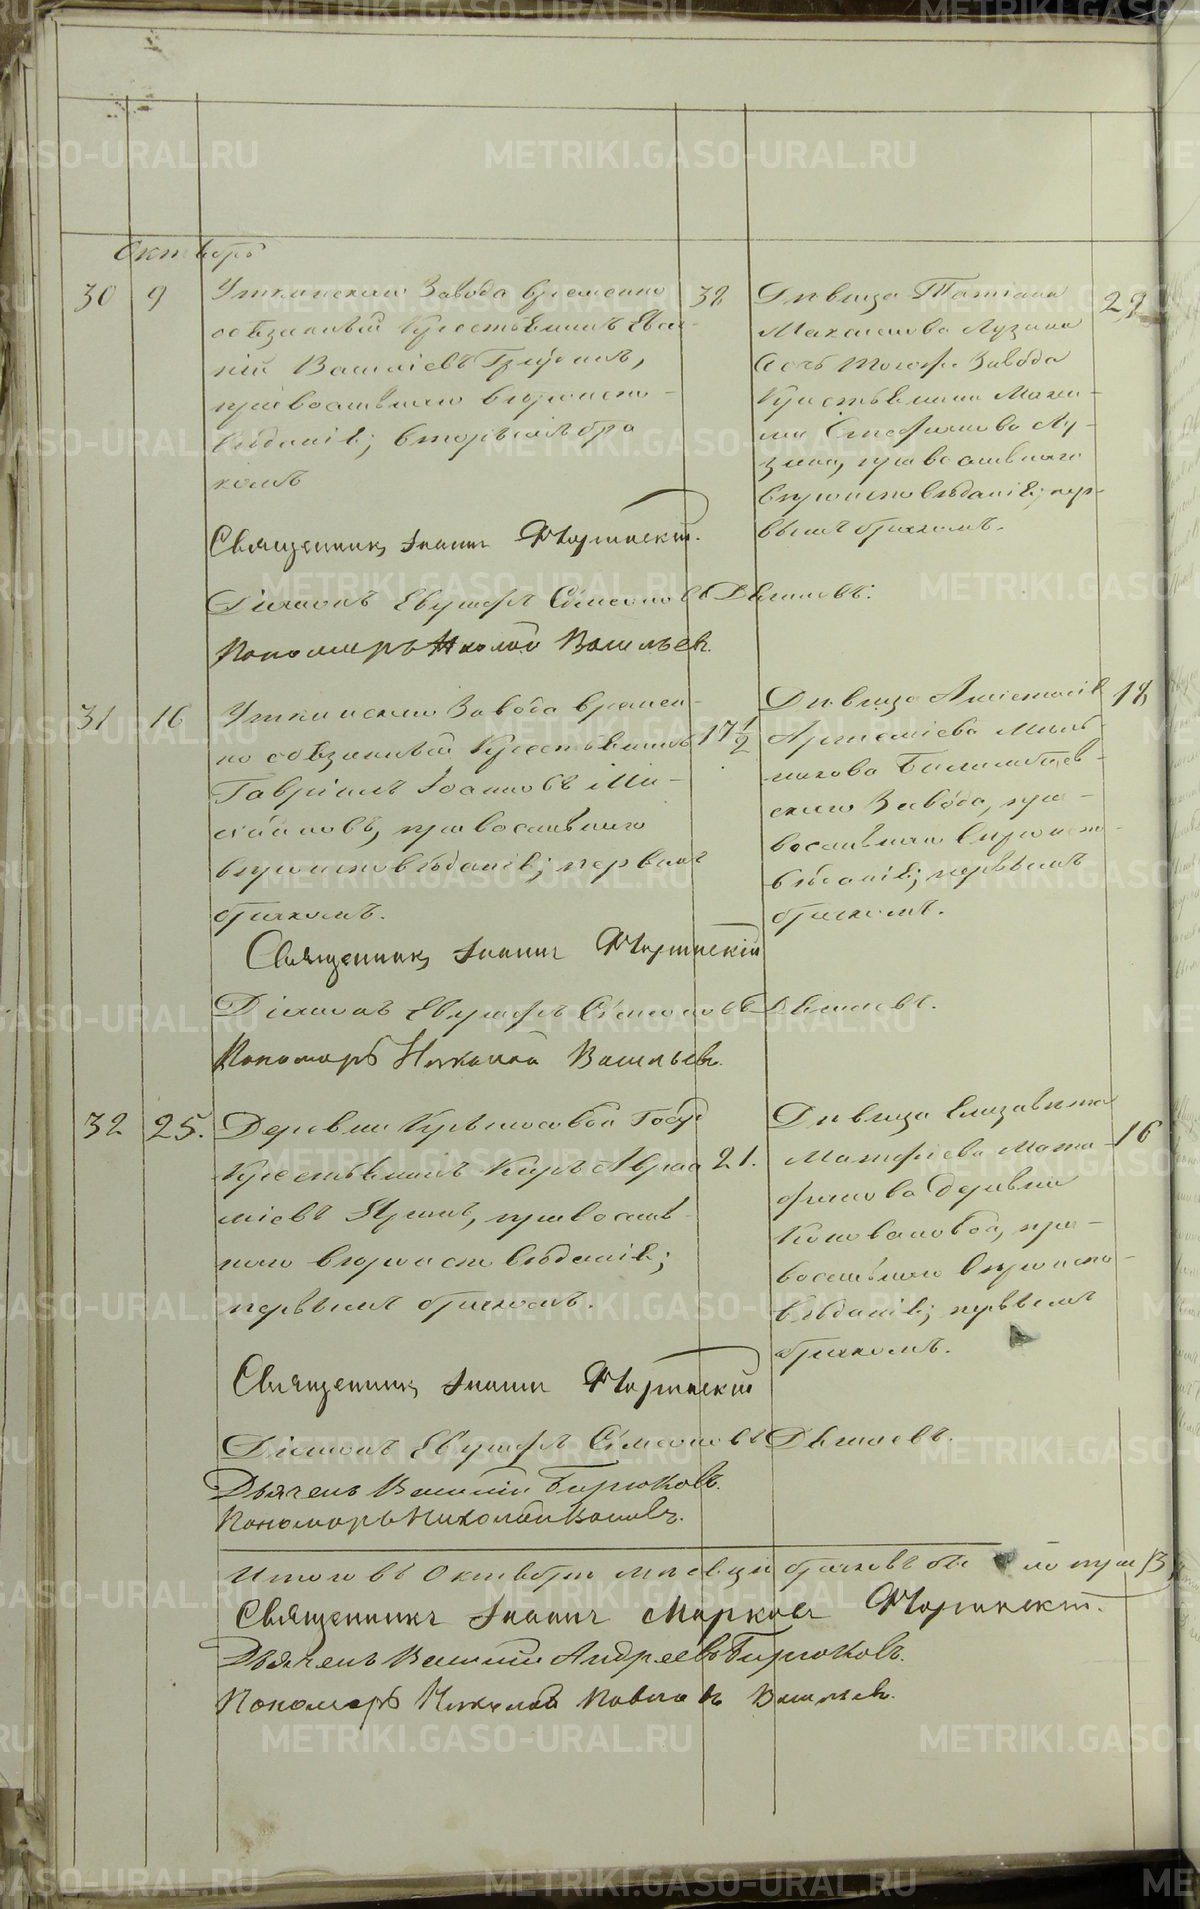 Октябрь
30 9 Уткинскаго Завода временно 32
обязанный Крестьянинъ Евге-
ній Василіевъ
православнаго вѣроиспо-
вѣданія; вторымъ бра
комъ
Дѣвица Татіана 22
Максимова Лузина
дочь тогоже Завода
Крестьянина Макси-
ма Стефанова Лу-
зина, православнаго
вѣроисповѣданія; пер-
вымъ бракомъ.
Священникъ Іоаннъ Флоринскій.
Діаконъ Евграфъ Сімеоновъ
Пономарь Николай Васильевъ.
31 16 Уткинскаго Завода времен-
но обязанный Крестьянинъ 17 1/2
Гавріилъ Іоанновъ
православнаго
вѣроисповѣданія; первымъ
бракомъ.
Дѣвица Анастасія 18
Артеміева Мель-
никова Билимбаев-
скаго Завода, пра-
вославнаго вѣроиспо-
вѣданія; первымъ
бракомъ.
Священникъ Іоаннъ Флоринскій
Діаконъ Евграфъ Сімеоновъ
Пономарь Николай Васильевъ.
32 25. Деревни Крылосовой Госуд
Крестьянинъ Киръ Авраа 21.
міевъ Яринъ, православ-
наго вѣроисповѣданія;
первымъ бракомъ.
Дѣвица Елизавета 16
Матфіева Мата-
фонова деревни
Коноваловой, пра-
вославнаго вѣроиспо-
вѣданія; первымъ
бракомъ.
Священникъ Іоаннъ Флоринскій
Діаконъ Евграфъ Сімеоновъ
Дьячекъ Василій Бирюковъ.
Пономарь Николай
Итого въ Октябрѣ мѣсяцѣ браковъ бы ло три /3/
Священникъ Іоаннъ Марковъ Флоринскій.
Дьячекъ Василій Андреевъ Бирюковъ.
Пономарь Николай Павловъ Васильевъ.
METRIKI.GASO-URAL.RU